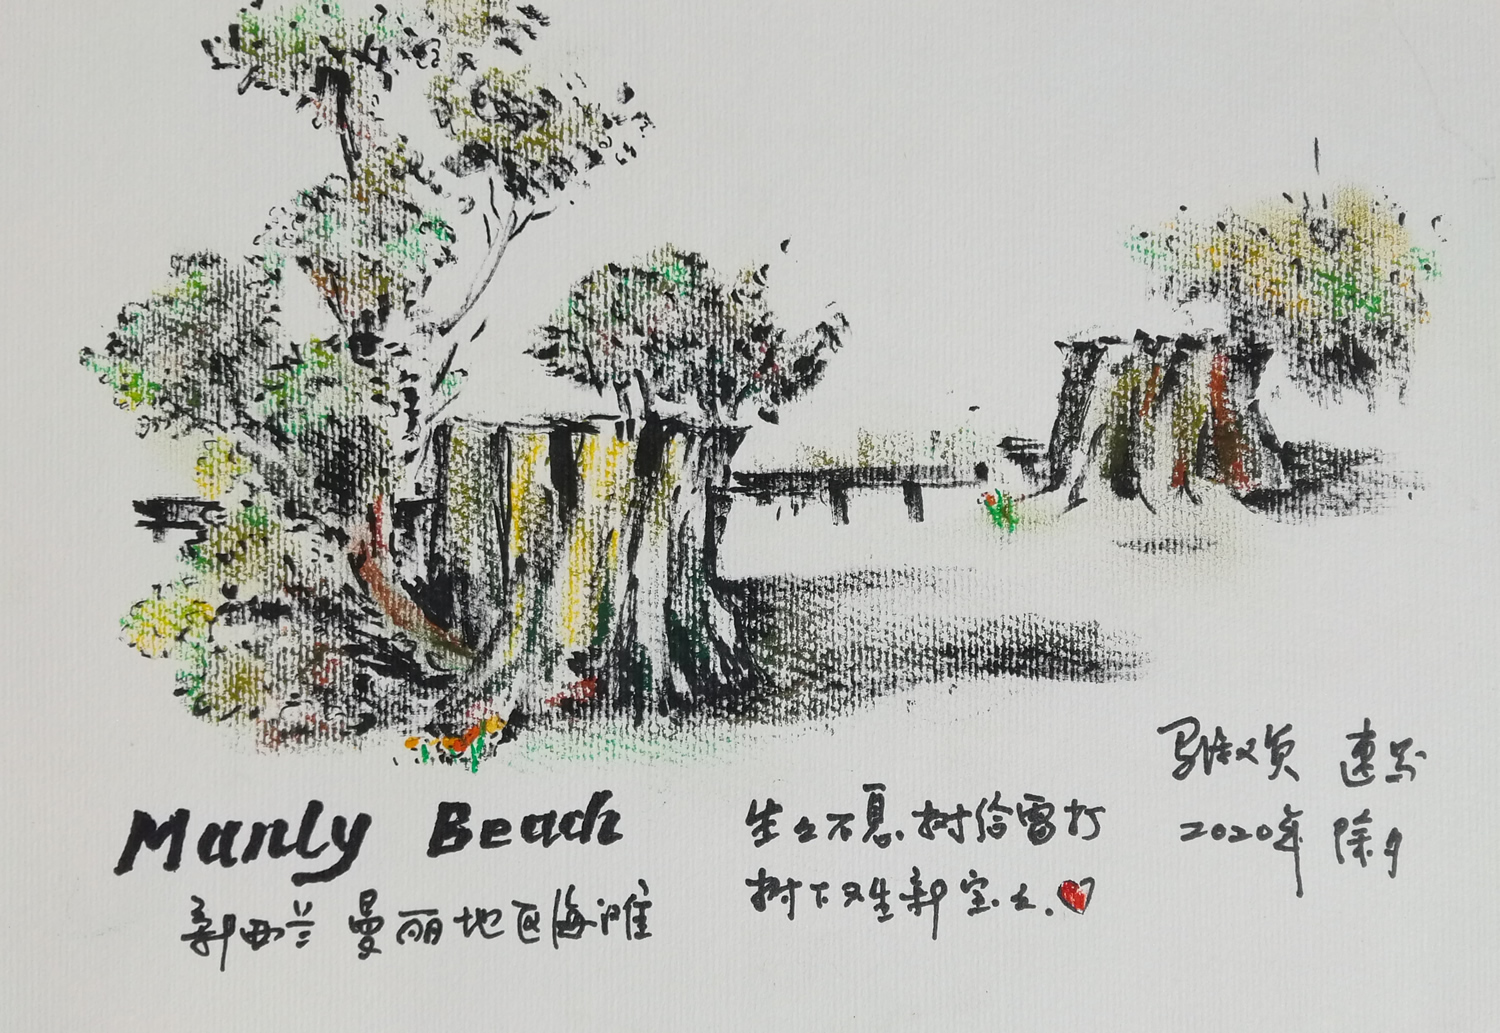 Manly Beach
新西兰 曼丽地区海滩
生生不息.树给雷打
树下又生新宝宝.
速写
2020年 除夕